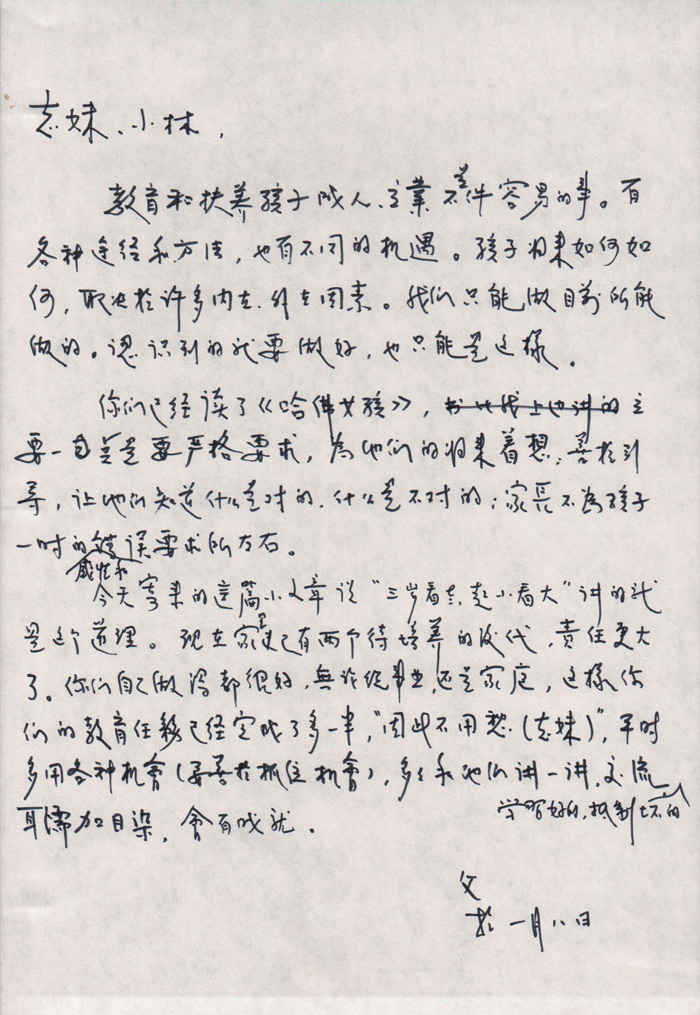 志妹、小林，
教育和扶养孩子成人、立業不是件容易的事。有
各种途径和方法，也有不同的机遇。孩子将来如何如
何，取决於许多内在、外在因素。我们只能做目前所能
做的。认识到的就要做好，也只能是这樣。
你们已经读了《哈佛女孩》，主
要一点是要严格要求，為他们的将来着想；善於引
导，让他们知道什么是对的，什么是不对的；家長不為孩子
一时的感性和錯误要求所左右。
今天寄来的這篇小文章说“三岁看老，赴小看大”讲的就
是这个道理。现在家里已有两个待培養的后代，责任更大
了。你们自己做得都很好，無论从事业，还是家庭，这樣你
们的教育任務已经完成了多一半，“因此不用愁（志妹）”，平时
多用各种机會（要善於抓住机會），多多和他们讲一讲，交流
学習好的，抵制坏的
耳濡加目染，會有成就。
父
於一月八日